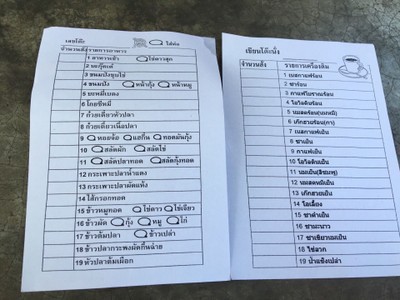 เลขโต๊ะ ใส่ห่อ
จำนวนสั่ง รายการอาหาร
1 อาหารเช้า ไข่ดาวสุก
2 ไข่กระทะ
3 ขนมปังชุบไข่
4 ขนมปัง หน้ากุ้ง หน้าหมู
5 บะหมี่แดง
6 โกยซีหมี่
7 ก๋วยเตี๋ยวหัวปลา
8 ก๋วยเตี๋ยวเนื้อปลา
9 หอยจ้อ แฮ่กึ๊น ทอดมันกุ้ง
10 สลัดผัก สลัดไข่
11 สลัดปลาทอด สลัดกุ้งทอด
12 กระเพาะปลาน้ำแดง
13 กระเพาะปลาผัดแห้ง
14 ไส้กรอกทอด
15 ข้าวหมูทอด ไข่ดาว ไข่เจียว
16 ข้าวผัด กุ้ง หมู ไก่
17 ข้าวต้มปลา ข้าวเปล่า
18 ข้าวปลากระพงผัดขึ้นฉ่าย
19 หัวปลาต้มเผือก
เขียนโต๊ะนั่ง
จำนวนสั่ง รายการเครื่องดื่ม
1 เนสกาแฟร้อน
2 ชาร้อน
3 กาแฟโบราณร้อน
4 โอวัลตินร้อน
5 นมสดร้อน(นมหมี)
6 เก๊กฮวยร้อน(กา)
7 เนสกาแฟเย็น
8 ชาเย็น
9 กาแฟเย็น
10 โอวัลตินเย็น
11 นมเย็น(สีชมพู)
12 นมสดหมีเย็น
13 เก๊กฮวยเย็น
14 โอเลี้ยง
15 ชาดำเย็น
16 ชามะนาว
17 ชาเขียวนมเย็น
18 ไข่ลวก
19 น้ำแข็งเปล่า